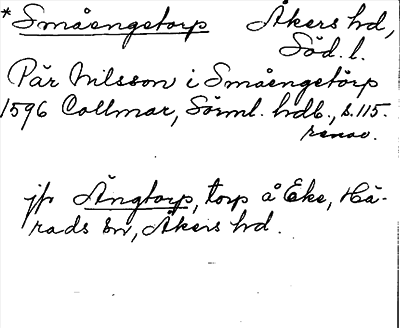 *Småengetorp Åkers hd,
Söd. l.
Pär Nilsson i Småengetorp
1596 Collmar, Sörml. hdb., s. 115.
renov.
jfr Ängtorp, torp å Eke, Hä-
rads sn, Åkers hd.